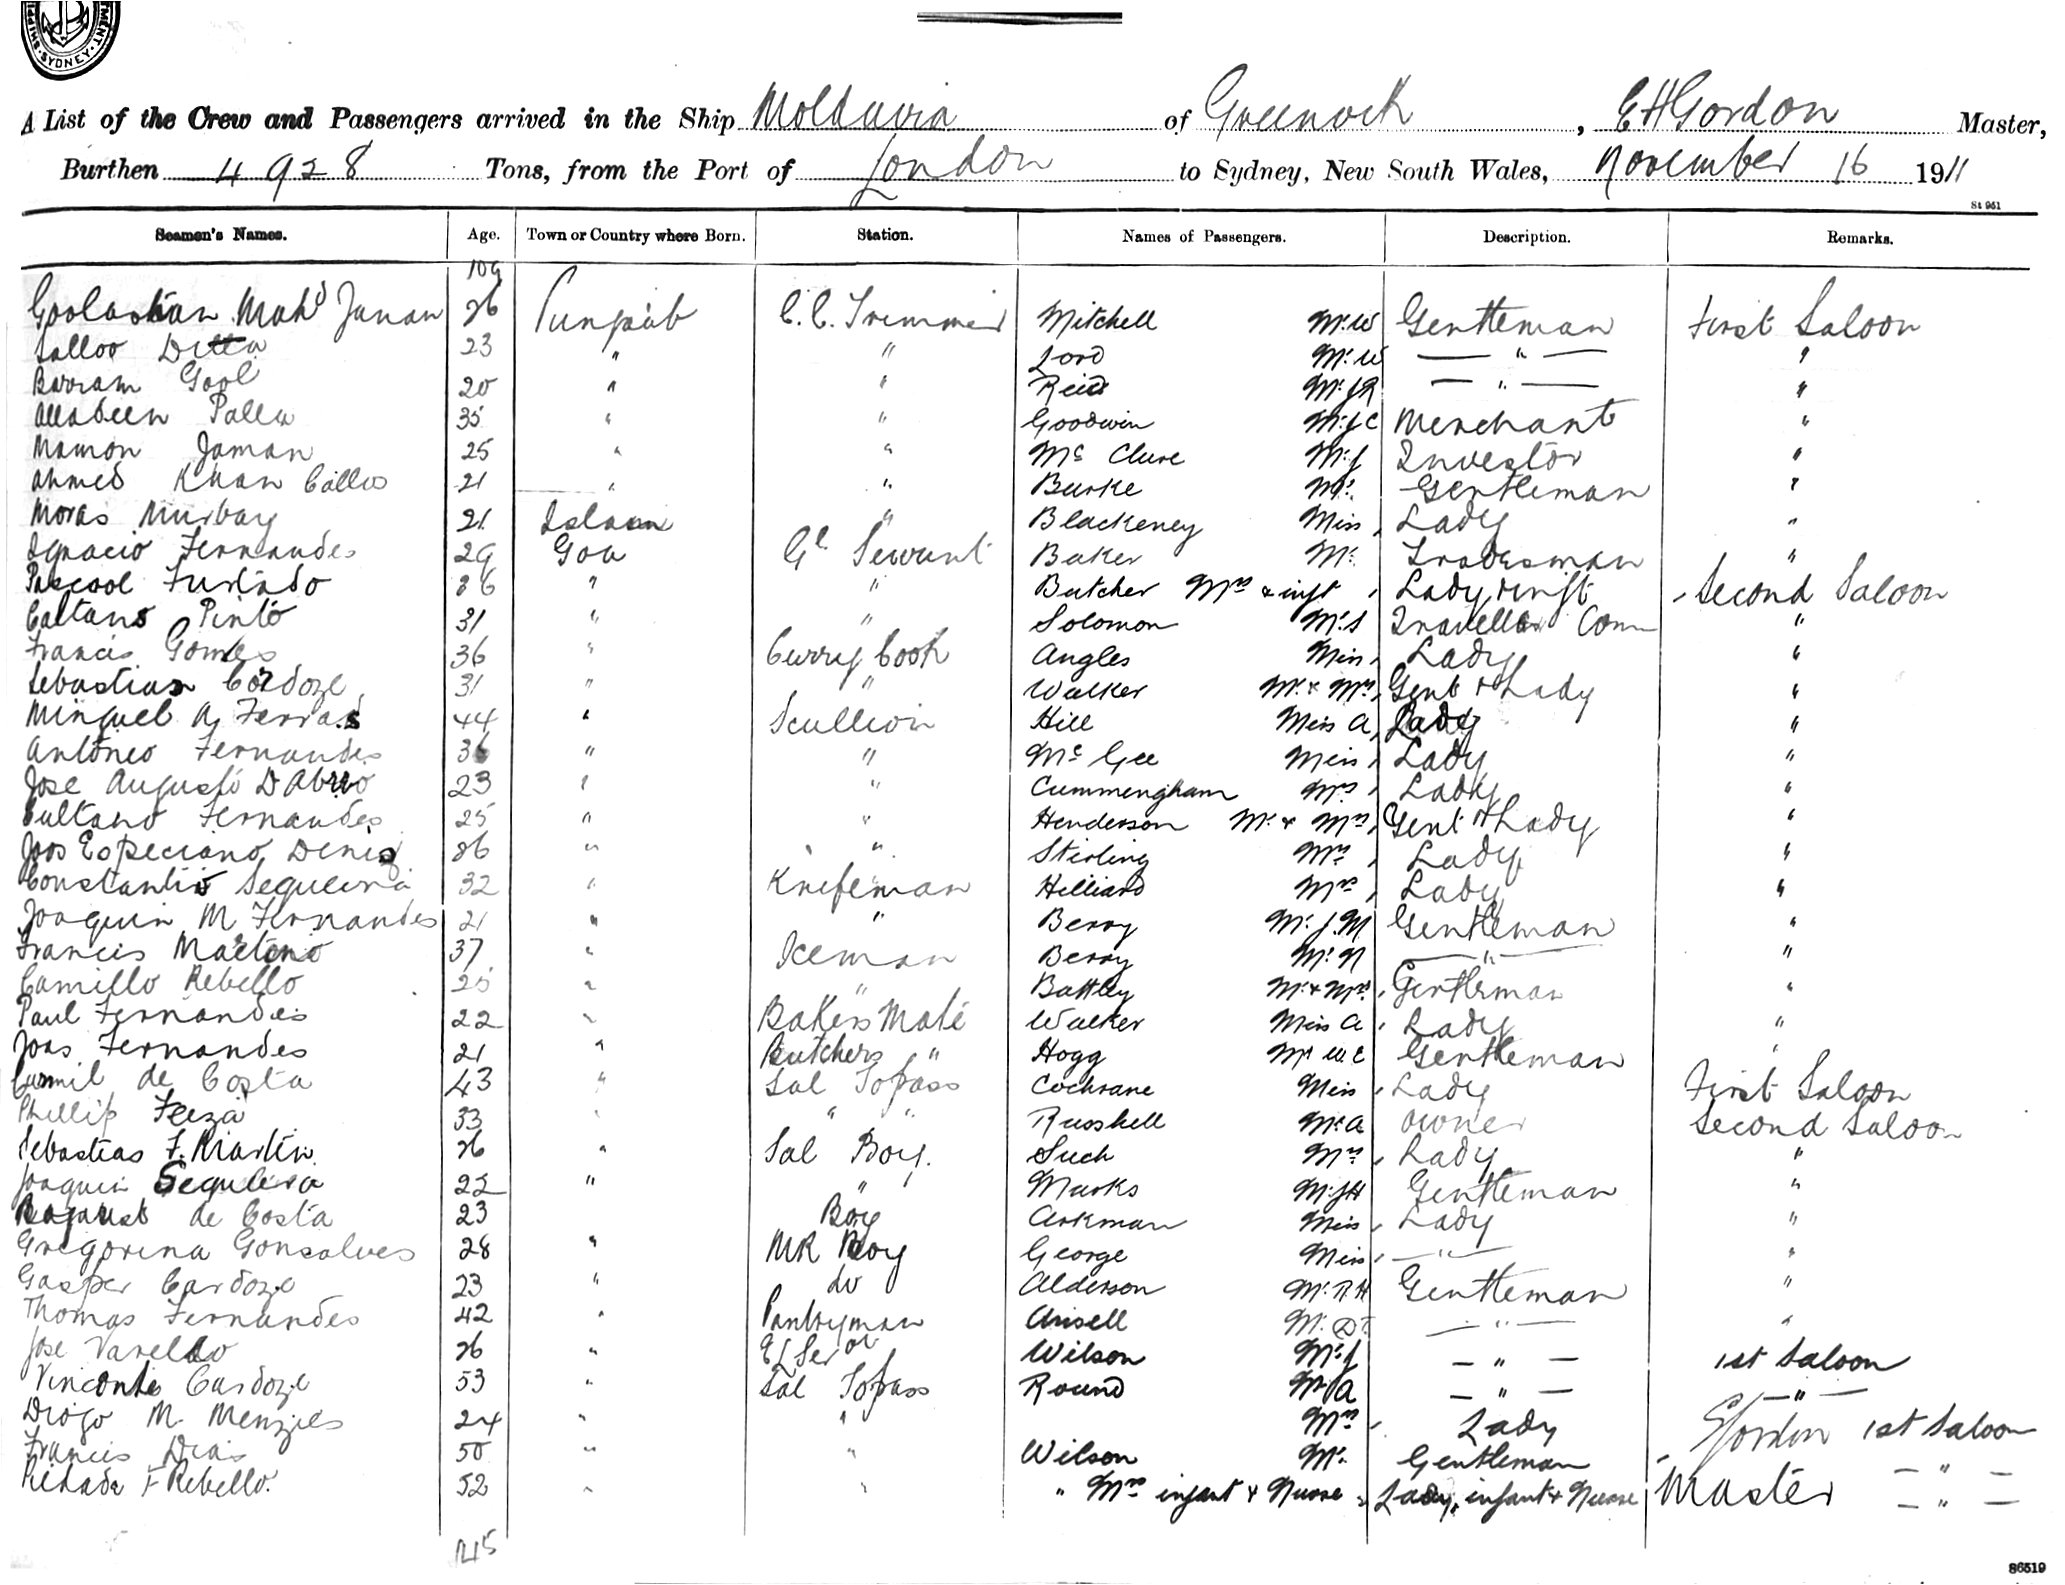 SYDNEY
A List of the Crew and Passengers arrived in the Ship Moldavia of Greenock, E H Gordon Master,
Burthen 4928 Tons, from the Port of London to Sydney, New South Wales, November 16 1911
St 951
Seamen's Names. Age. Town or Country where Born. Station. Names of Passengers. Description. Remarks.
109
Goolastian Mahd Junan 26 Punjaub C. C. Trimmer Mitchell Mr W Gentleman First Saloon
Salloo Ditta 23 " " Lord Mr W — " — "
Barram Gool 20 " " Reid Mr J R — " — "
Allabeen Palla 35 " " Goodwin Mr J C Merchant "
Mamon Jaman 25 " " Mc Clure Mr J Investor "
Ahmed Khan 21 " " Burke Mr. Gentleman "
Moras Murbay 21 " Blackeney Miss, Lady "
Ignacio Fernandes 29 Goa Gl Servant Baker Mr. Tradesman "
Pascool Furtado 36 " " Butcher Mrs & inft, Lady & inft Second Saloon
Caltano Pinto 31 " " Solomon Mr S Traveller Com "
Francis Gomes 36 " Curry Cook Angles Miss, Lady "
Sebastian Cordoze 31 " " Walker Mr & Mrs, Gent & Lady "
Minguel A, Ferras 44 " Scullion Hill Miss A, Lady "
Antoneo Fernandes 36 " " Mc Gee Miss, Lady "
Jose Augusto D Abreo 23 " " Cummengham Mrs, Lady "
Cultano Fernandes 25 " " Henderson Mr & Mrs, Gent & Lady "
Joos Especiano Deniz 36 " " Stirling Mrs, Lady "
Constantio Sequeira 32 " Knifeman Hilliard Mrs, Lady "
Joaquin M Fernandes 21 " " Berry Mr. J. M Gentleman "
Francis 37 " Iceman Berry Mr. N — " — "
Camillo Rebello 25 " " Battley Mr & Mrs, Gentleman "
Paul Fernandes 22 " Bakers Mate Walker Miss A, Lady "
Joas Fernandes 21 " Butchers " Hogg Mr W E Gentleman "
de Costa 43 " Sal Topass Cochrane Miss, Lady First Saloon
Phillip 33 " " " Russhell Mr A Owner Second Saloon
Sebastias F. Martin 26 " Sal Boy. Such Mrs, Lady "
Joaquin Sequeira 22 " " Marks Mr J H Gentleman "
de Costa 23 Boy Arkman Miss, Lady "
Gregorina Gonsalves 28 " MR Boy George Miss, — " — "
Gasper Cardoze 23 " do Alderson Mr. R. H Gentleman "
Thomas Fernandes 42 " Pantryman Ansell Mr. — " — "
Jose Varello 26 " Wilson Mr J — " — 1st Saloon
Vinconte Cardoze 53 " Sal Topass Round Mr A — " — — " —
Diogo M. Menzies 24 " " Mrs, Lady EHGordon 1st Saloon
Francis Dias 50 " " Wilson Mr. Gentleman — " —
F Rebello. 52 " " " Mrs infant & Nurse, Lady, infant & Nurse Master — " —
145
86519